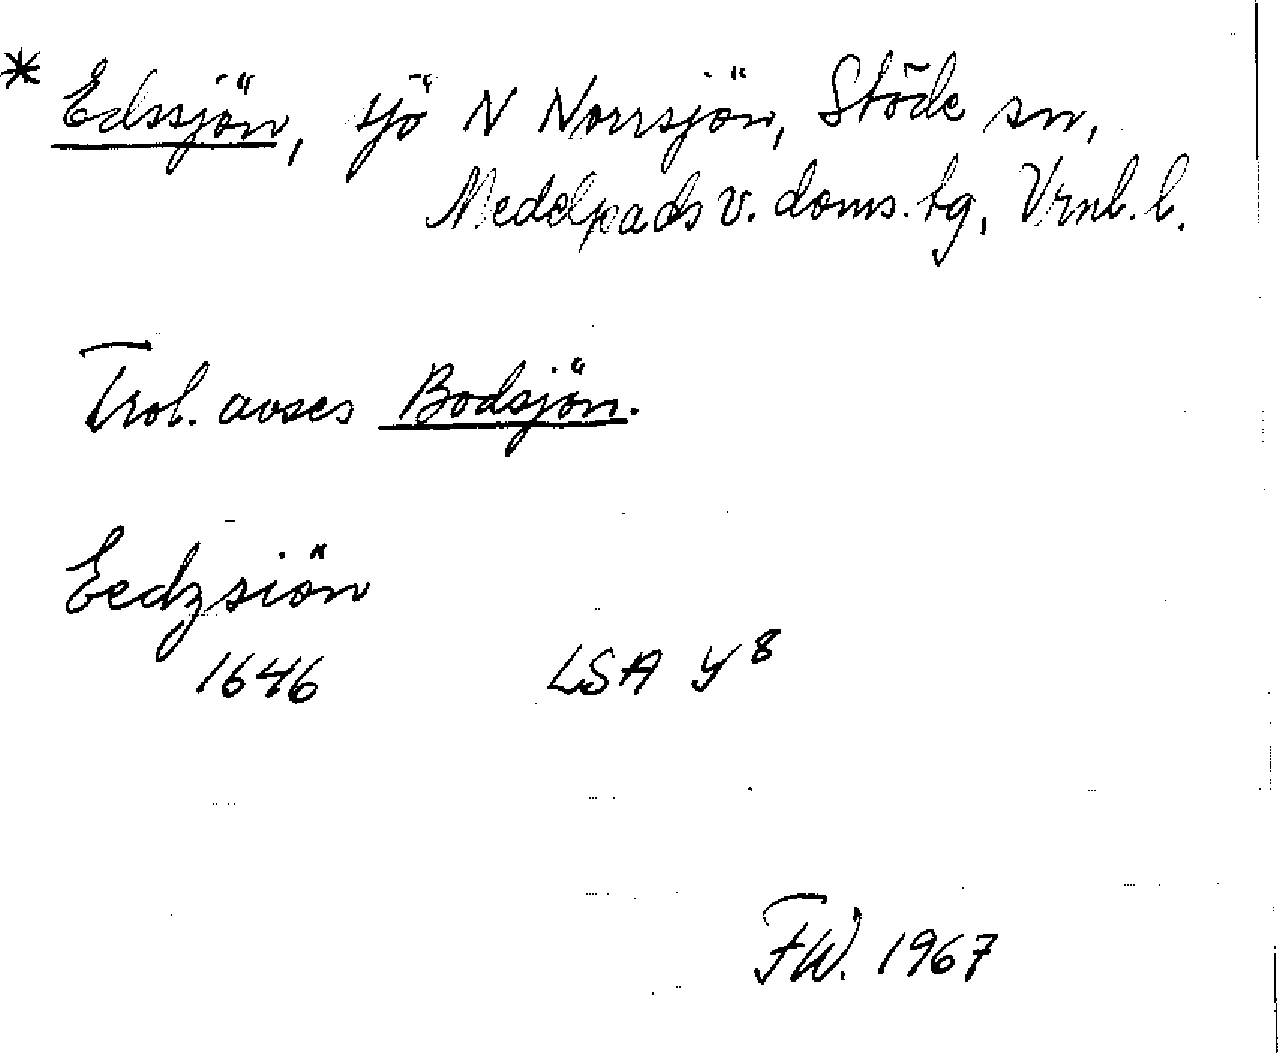 * Edssjön, sjö N Norrsjön, Stöde sn,
Medelpads v. doms. tg, Vrnl. l.
Trol. avses Bodsjön.
Eedzsiön
1646 LSA Y 8
FW. 1967